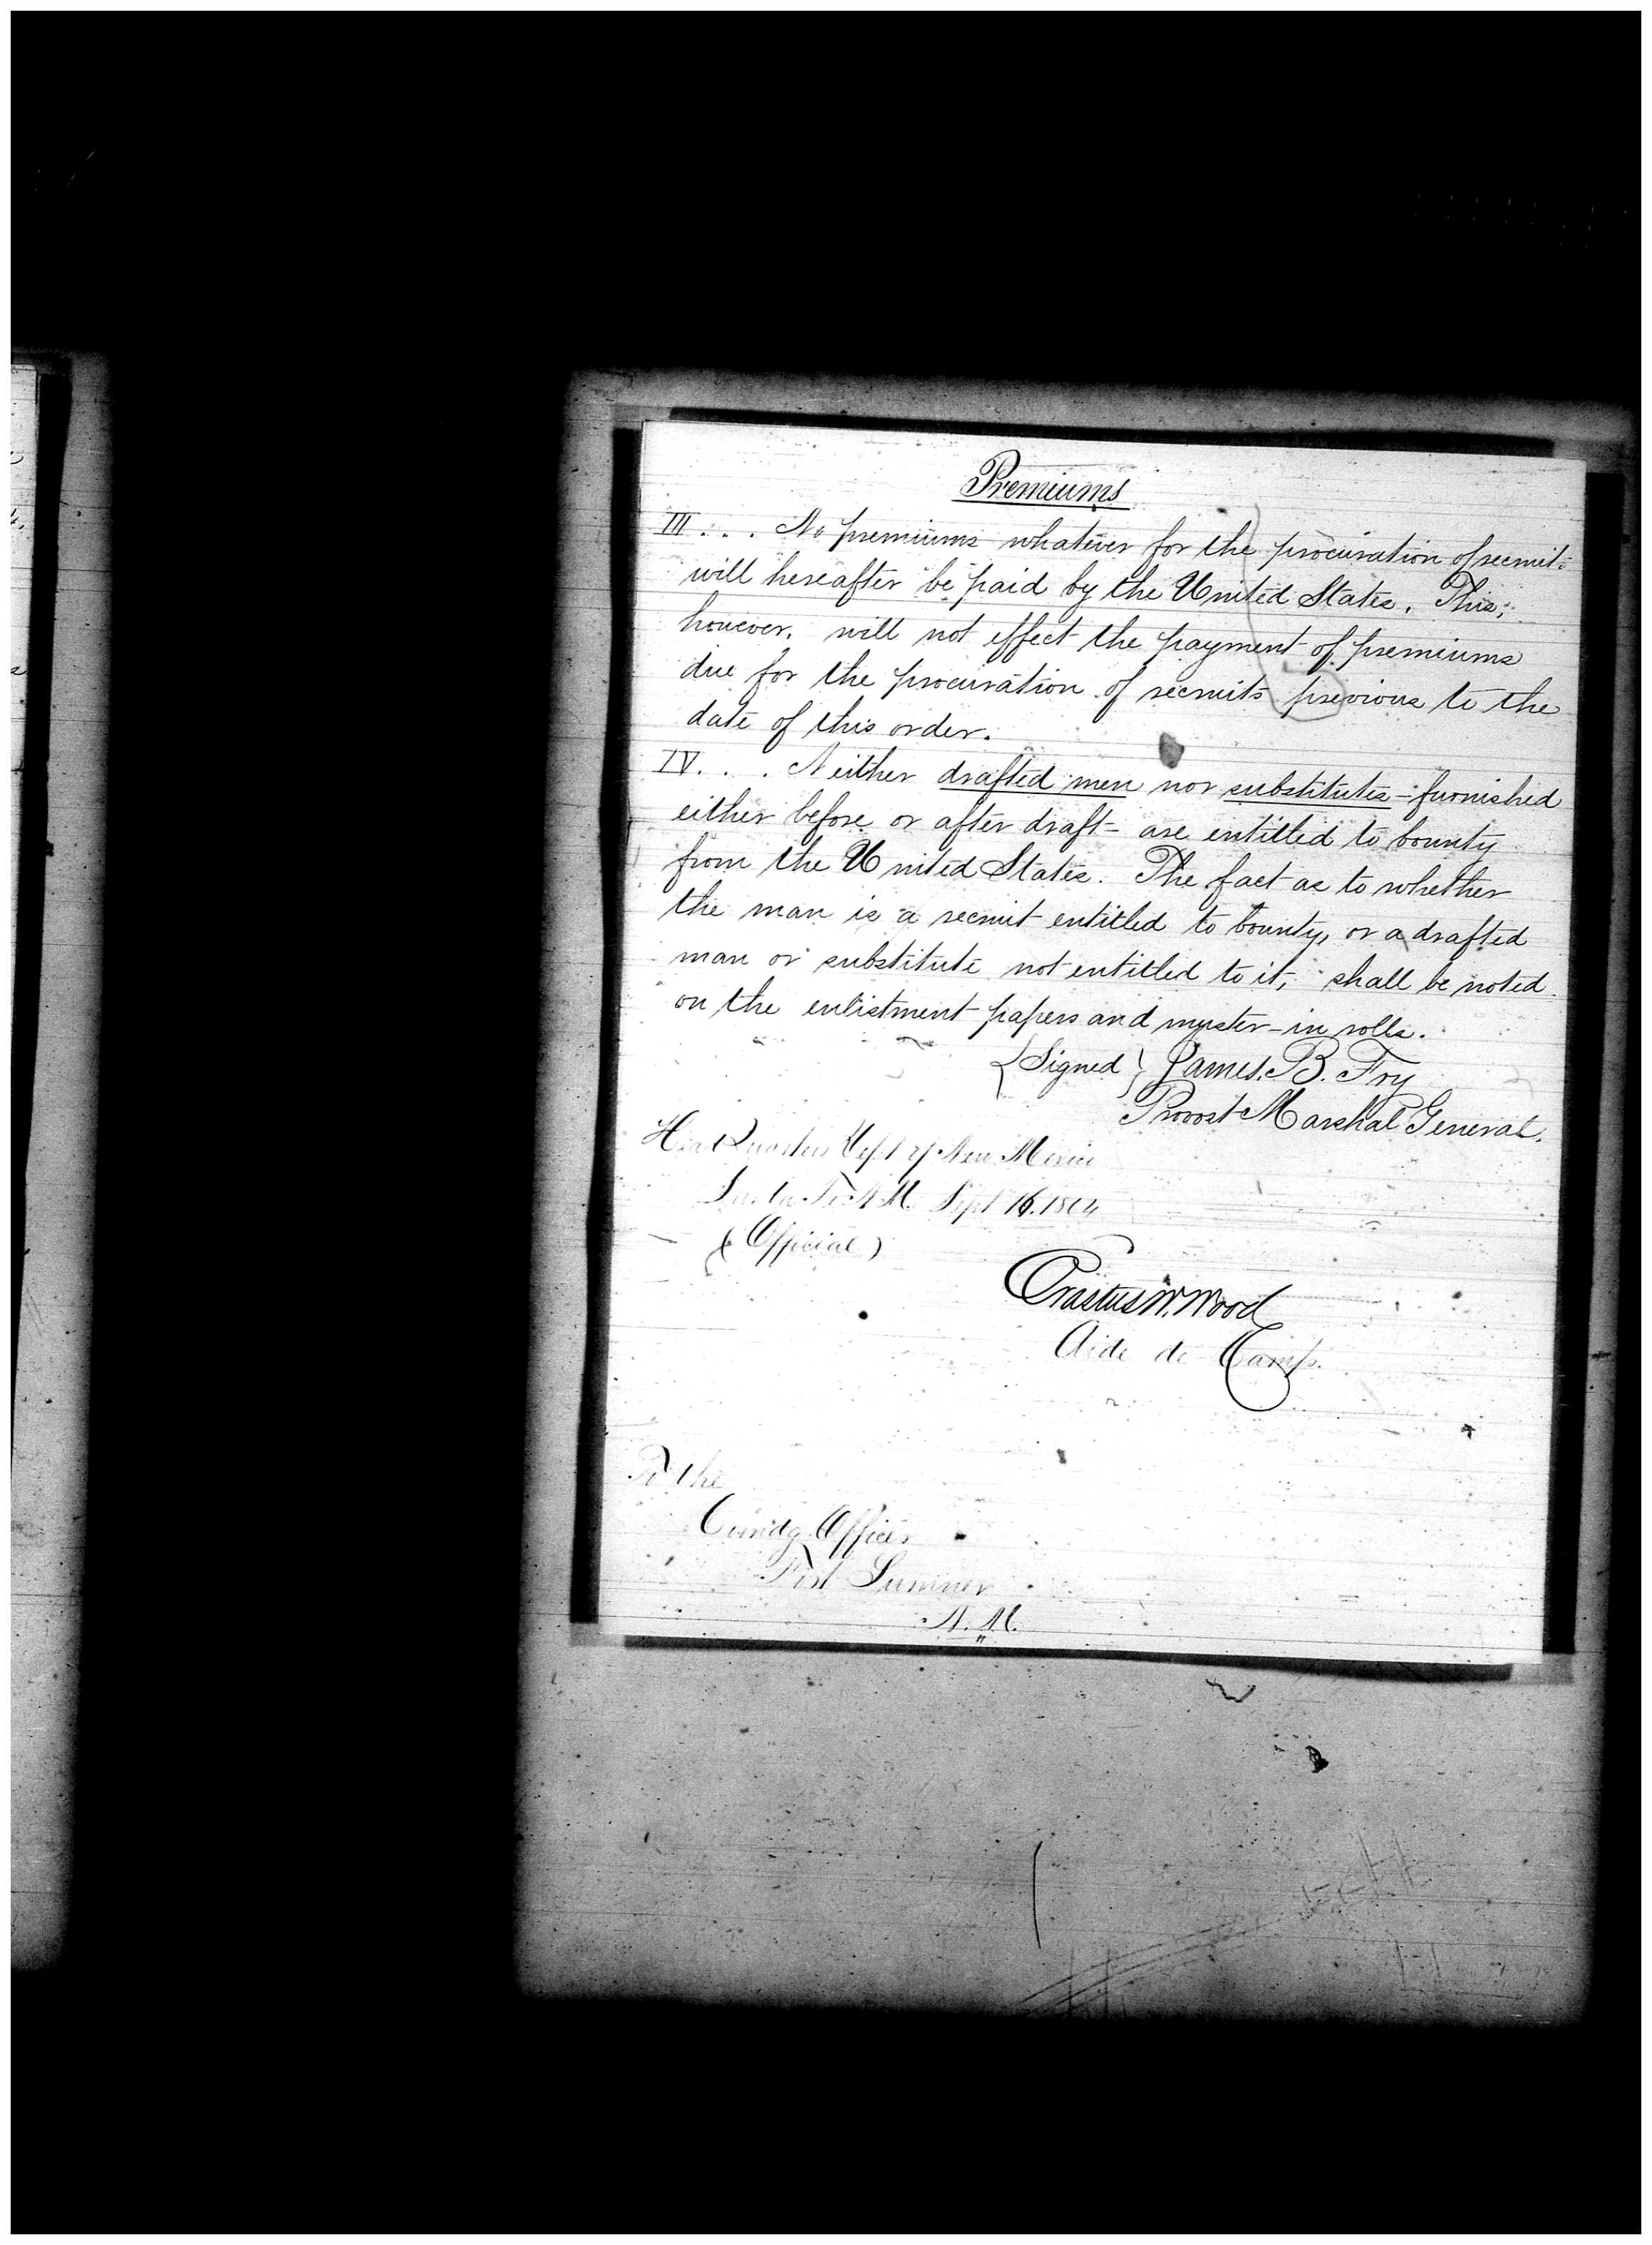 Premiums
III . . . No premiums whatever for the procuration of recruits
will hereafter be paid by the United States. This,
however, will not effect the payment of premiums
due for the procuration of recruits previous to the
date of this order.
IV. . . . Neither drafted men nor substitutes - furnished
either before or after draft - are entitled to bounty
from the United States. The fact as to whether
the man is a recruit entitled to bounty, or a drafted
man or substitute not entitled to it, shall be noted
on the enlistment papers and muster-in rolls.
{Signed} James. B. Fry
Provost Marshal General.
Head Quarters Dept of New Mexico
Santa Fe N.M. Sept 16. 1864
(Official)
Erastus W. Wood
Aide de Camp.
To the
Comdg. Officer
Fort Sumner
N. M.